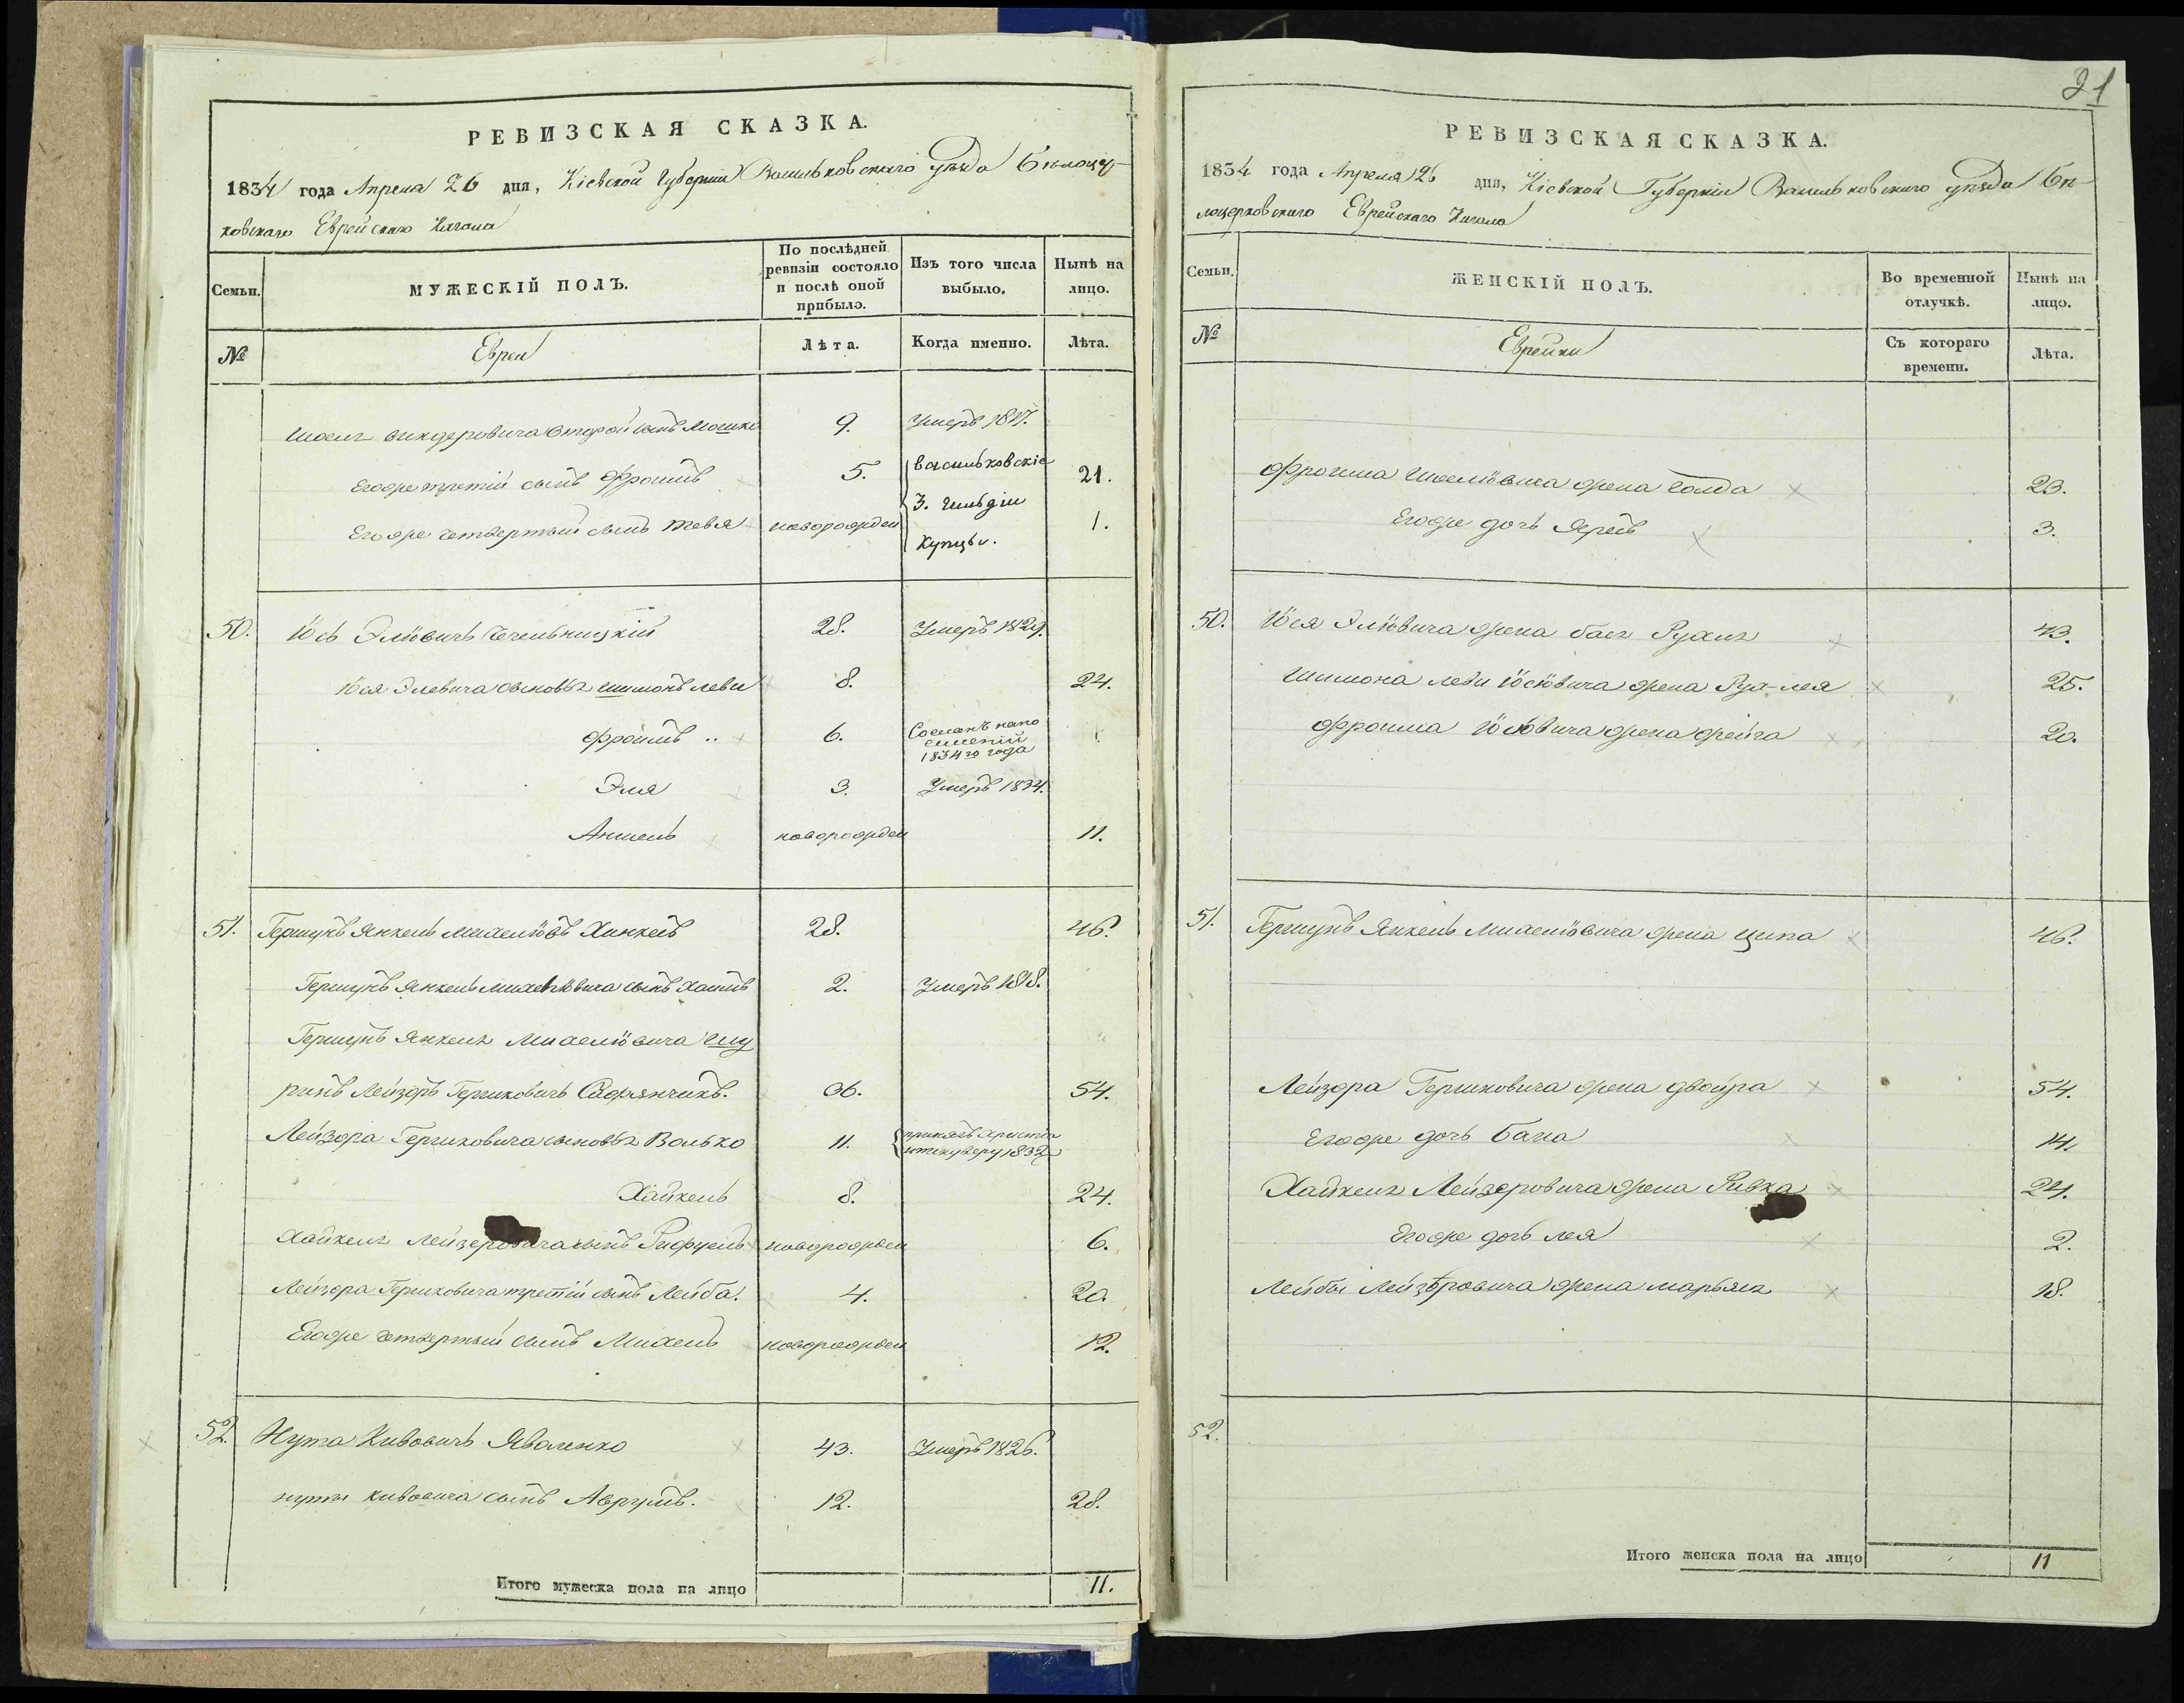 РЕВИЗСКАЯ СКАЗКА.
1834 года Апреля 26 дня, Кіевской Губерніи Васильковскаго уѣзда Бѣлоцер-
ковскаго Еврейскаго Кагала
Семьи.
МУЖЕСКІЙ ПОЛЪ.
По послѣдней ревизіи состояло и послѣ оной прибыло.
Изъ того числа выбыло.
Нынѣ на лицо.
№
Евреи
Лѣта.
Когда именно.
Лѣта.
второй сынъ Мошко 9. Умеръ 1817.
Егоже третій сынъ Фроимъ 5. Васильковскіе 21.
3. Гильдіи
Егоже четвертый сынъ Тевя новорожден 1.
Купцы.
50. Іось Эліовичъ Чечельницкій 28. Умеръ 1829.
Іося Элевича сыновья Шимонъ Леви 8. 24.
Фроимъ 6.
1834го года
Эля 3. Умеръ 1834.
Аншель новорожден 11.
51. Гершунъ Янкель Михеліовъ Хинкесъ 28. 46.
Гершунъ Янкель Михеліовича сынъ Хаимъ 2. Умеръ 1818.
Гершунъ Янкеля Михеліовича Шу
ринъ Лейзоръ Гершковичъ Сафянчикъ. 36. 54.
Лейзора Гершковича сыновья Волько 11.
Хайкель 8. 24.
Хайкеля Лейзеровича сынъ Рифуель новорожден 6.
Лейзора Гершковича третій сынъ Лейба. 4. 20
Егоже четвертый сынъ Михель новорожден 12.
52. Нута Кивовичъ Яваленко 43. Умеръ 1826.
Нуты Кивовича сынъ Аврумъ. 12. 28.
Итого мужеска пола на лицо 11.
21
РЕВИЗСКАЯ СКАЗКА.
1834 года Апреля 26 дня, Кіевской Губерніи Васильковскаго уѣзда Бѣ-
лоцерковскаго Еврейскаго Кагала
Семьи.
ЖЕНСКІЙ ПОЛЪ.
Во временной отлучкѣ.
Нынѣ на лицо.
№
Еврейки
Съ котораго времени.
Лѣта.
Фроима жена Голда 23.
Егоже дочь 3.
50. Іося Эліовича жена Рухля 43.
Шимона Леви Іосіовича жена Рухля 25.
Фроима Іосіовича жена Фейга 20.
51. Гершунъ Янкель Михеліовича жена Ципа 46.
Лейзора Гершковича жена Двойра 54.
Егоже дочь 14.
Хайкеля Лейзеровича жена Ривка 24.
Егоже дочь Лея 2.
Лейбы Лейзеровича жена Марьяся 18.
52.
Итого женска пола на лицо 11